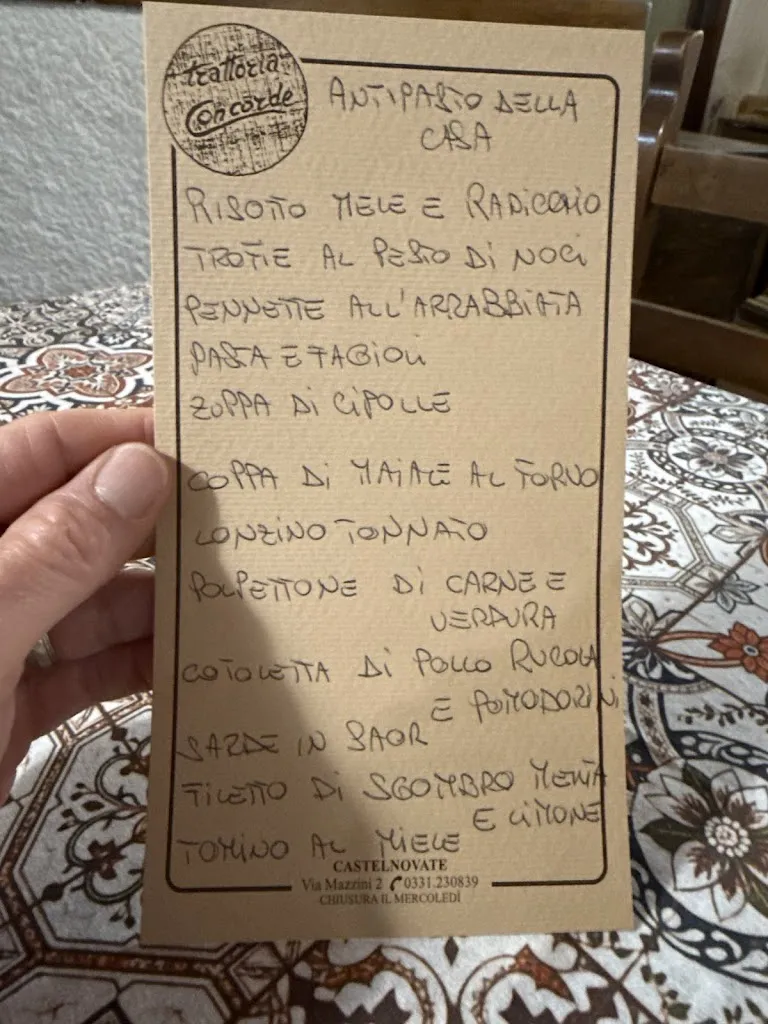 trattoria
Concorde
ANTIPASTO DELLA
CASA
RISOTTO MELE E RADICCHIO
TROFIE AL PESTO DI NOCI
PENNETTE ALL'ARRABBIATA
PASTA E FAGIOLI
ZUPPA DI CIPOLLE
COPPA DI MAIALE AL FORNO
LONZINO TONNATO
POLPETTONE DI CARNE E
VERDURA
COTOLETTA DI POLLO RUCOLA
E POMODORINI
SARDE IN SAOR
FILETTO DI SGOMBRO MENTA
E LIMONE
TOMINO AL MIELE
CASTELNOVATE
Via Mazzini 2 0331.230839
CHIUSURA IL MERCOLEDÌ